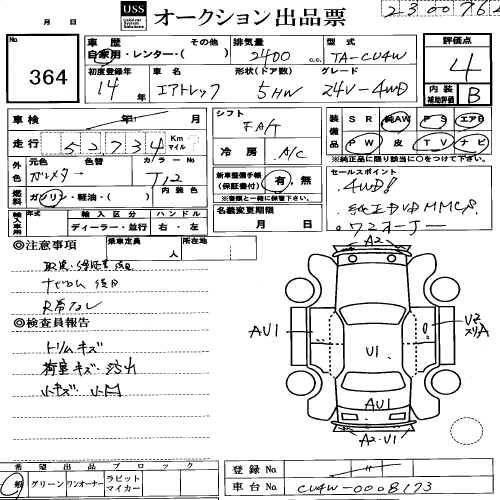 USS オークション出品票
23 00 76
月 日
No.
364
車歴 自家用・レンター・( ) その他
排気量 2400 c.c.
型式 TA-CU4W
初度登録年 14年
車名 エアトレック
形状(ドア数) 5HW
グレード 24V-4WD
評価点 4
内装補助評価 B
車検 年 月
走行 52734 Km マイル
シフト F A/T
冷房 A/C
装備品 SR 純AW PS エアB
PW 皮 TV ナビ
※純正品に限り該当に○をして下さい。
外色 元色 色替 カラーNo. T12
燃料 ガソリン・軽油・( ) 内装色
新車整備手帳(保証書付) 有・無
※書類と一緒に保管下さい。
セールスポイント
4WD!
純正DVD MMCS
ワンオーナー
輸入車用 年式 輸入区分 ハンドル
ディーラー・並行 右・左
名義変更期限 月 日
◎注意事項
乗車定員 人
所在地
取説・保証書 後日
ナビROM 後日
R券なし
◎検査員報告
トリムキズ
荷室キズ・汚れ
A2
AU1
U1
AU1
A2・U1
希望出品ブロック
般 グリーン ワンオーナー ラビット マイカー
登録No.
車台No. CU4W-0008173